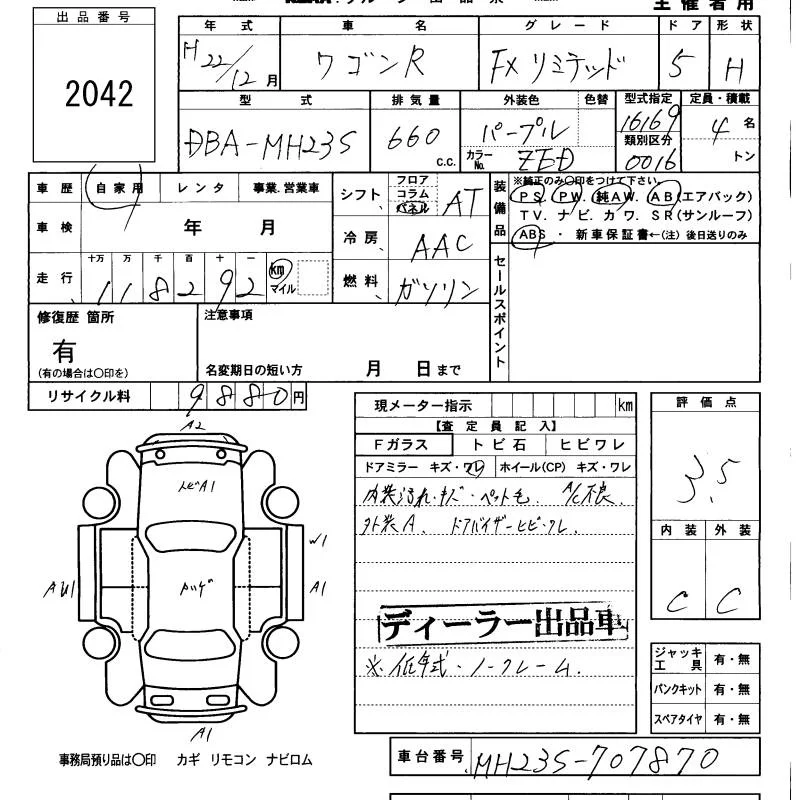 出品番号
2042
主催者用
年式 車名 グレード ドア 形状
H22/12月 ワゴンR FXリミテッド 5 H
型式 排気量 外装色 色替 型式指定 定員・積載
DBA-MH23S 660 C.C. パープル 16169 4名
カラーNo. ZED 類別区分 0016 トン
車歴 自家用 レンタ 事業.営業車
シフト フロア コラム パネル AT
装備品 ※純正のみ○印をつけて下さい。
PS. PW. 純AW. AB(エアバック)
TV. ナビ. カワ. SR(サンルーフ)
ABS ・ 新車保証書←(注) 後日送りのみ
車検 年 月
冷房 AAC
走行 十万 万 千 百 十 一
118292 km マイル
燃料 ガソリン
セールスポイント
修復歴 箇所
有
(有の場合は○印を)
注意事項
名変期日の短い方 月 日まで
リサイクル料 9880円
現メーター指示 km
【査定員記入】
Fガラス トビ石 ヒビワレ
ドアミラー キズ・ワレ ホイール(CP) キズ・ワレ
内装汚れ・キズ・ペット毛. A/C不良.
外装A. ドアバイザーヒビ・ワレ
ディーラー出品車
※低年式・ノークレーム.
評価点
3.5
内装 外装
C C
ジャッキ工具 有・無
パンクキット 有・無
スペアタイヤ 有・無
A2
トビA1
W1
AU1
A1
A1
事務局預り品は○印 カギ リモコン ナビロム
車台番号 MH23S-707870